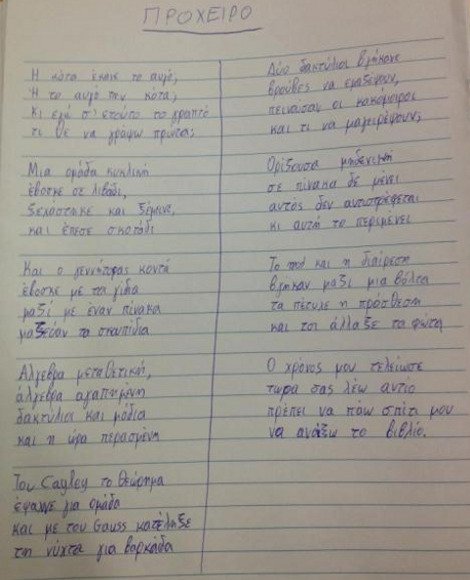 ΠΡΟΧΕΙΡΟ
Η κότα έκανε το αυγό,
Ή το αυγό την κότα;
Κι εγώ σ' ετούτο το γραπτό
τι θε να γράψω πρώτα;
Μια ομάδα κυκλική
έβοσκε σε λιβάδι,
ξεχάστηκε και ξέμεινε,
και έπεσε σκοτάδι
Και ο γεννήτορας κοντά
έβοσκε με τα γίδια
μαζί με έναν πίνακα
μαζεύαν τα σκουπίδια
Άλγεβρα μεταθετική,
άλγεβρα αγαπημένη
δακτύλια και μόδια
και η ώρα περασμένη
Του Cayley το θεώρημα
έψαχνε για ομάδα
και με του Gauss κατέληξε
τη νύχτα για βαρκάδα
Δύο δακτύλιοι βγήκανε
βρούβες να μαζέψουν,
πεινούσαν οι κακόμοιροι
και τι να μαγειρέψουν;
Ορίζουσα μηδενική
σε πίνακα δε μένει
αυτός δεν αντιστρέφεται
κι αυτή το περιμένει
Το mod και η διαίρεση
βγήκαν μαζί μια βόλτα
τα πέτυχε η πρόσθεση
και τσι άλλαξε τα φώτα
Ο χρόνος μου τελείωσε
τώρα σας λέω αντίο
πρέπει να πάω σπίτι μου
να ανοίξω το βιβλίο.